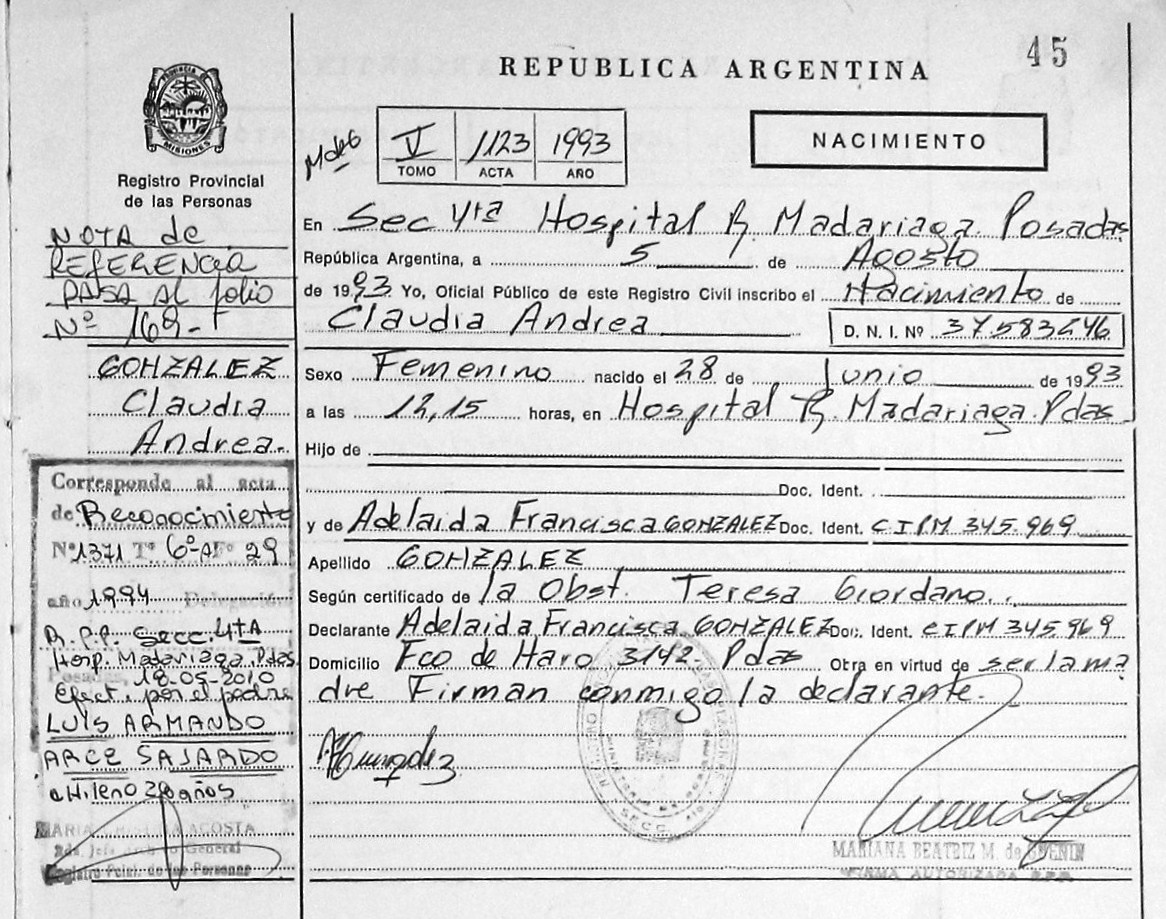 45
REPUBLICA ARGENTINA
PROVINCIA DE
MISIONES
Registro Provincial
de las Personas
V 1123 1993
TOMO ACTA AÑO
NACIMIENTO
NOTA de
REFERENCIA
PASA AL folio
Nº 169-
GONZALEZ
Claudia
Andrea
En Sec 4ta Hospital R. Madariaga. Posadas
República Argentina, a 5 de Agosto
de 1993 Yo, Oficial Público de este Registro Civil inscribo el Nacimiento de
Claudia Andrea D. N. I. Nº 37.583.246
Sexo Femenino nacido el 28 de Junio de 1993
a las 12,15 horas, en Hospital R. Madariaga. Pdas
Hijo de
Doc. Ident.
y de Adelaida Francisca GONZALEZ Doc. Ident. CIPM 345.969
Apellido GONZALEZ
Según certificado de la Obst. Teresa Giordano..
Declarante Adelaida Francisca GONZALEZ Doc. Ident. CIPM 345.969
Domicilio Fco de Haro 3142. Pdas Otra en virtud de ser la ma
dre Firman conmigo la declarante.
Corresponde al acta
de Reconocimiento
Nº 1371 Tº 6º Fº 29
año 1994 Delegación
R.P.P. Secc. 4tA
Hosp. Madariaga Pdas
Posadas, 18-05-2010
Efect. por el padre
LUIS ARMANDO
ARCE SAJARDO
chileno 20 años
MARIA CRISTINA ACOSTA
General
Registro Pcial. de las Personas
SECC.
MARIANA BEATRIZ M. de
FIRMA AUTORIZADA R.P.P.